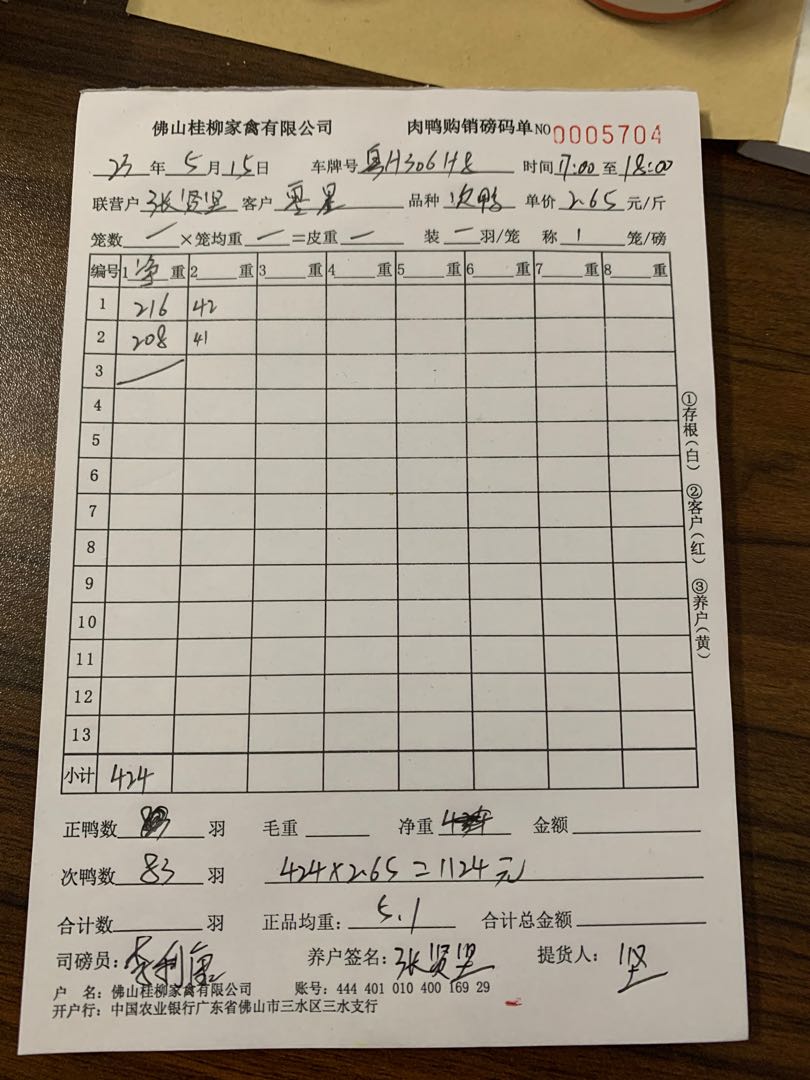 佛山桂柳家禽有限公司 肉鸭购销磅码单 NO 0005704
23 年 5 月 15 日 车牌号 粤H306H8 时间 17:00 至 18:00
联营户 张贤坚 客户 品种 次鸭 单价 2.65 元/斤
笼数 / × 笼均重 — = 皮重 — 装 — 羽/笼 称 1 笼/磅
编号 1 净 重 2 重 3 重 4 重 5 重 6 重 7 重 8 重
1 216 42
2 208 41
3 /
4
5
6
7
8
9
10
11
12
13
小计 424
正鸭数 羽 毛重 净重 金额
次鸭数 83 羽 424×2.65=1124元
合计数 羽 正品均重: 5.1 合计总金额
司磅员: 养户签名: 张贤坚 提货人: 坚
户 名: 佛山桂柳家禽有限公司 账号: 444 401 010 400 169 29
开户行: 中国农业银行广东省佛山市三水区三水支行
①存根(白) ②客户(红) ③养户(黄)